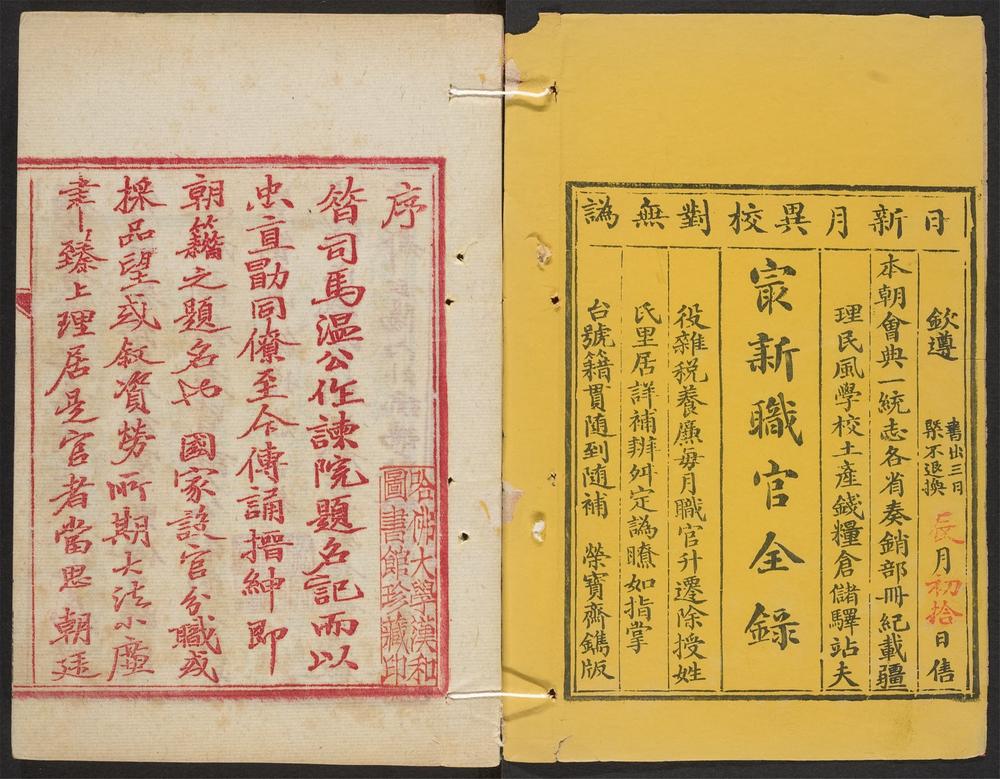 日新月異校對無譌
欽遵 書出三日 槩不退換 辰月初拾日售
本朝會典一統志各省奏銷部冊紀載疆
理民風學校土產錢糧倉儲驛站夫
㝡新職官全錄
役雜稅養廉每月職官升遷除授姓
氏里居詳補辦舛定譌瞭如指掌
台號籍貫隨到隨補 榮寶齋鐫版
序
哈佛大學漢和
圖書館珍藏印
昝司馬溫公作諫院題名記而以
忠直勖同僚至今傳誦搢紳即
朝籍之題名也 國家設官分職或
採品望或敘資勞所期大法小廉
聿臻上理居是官者當思 朝廷